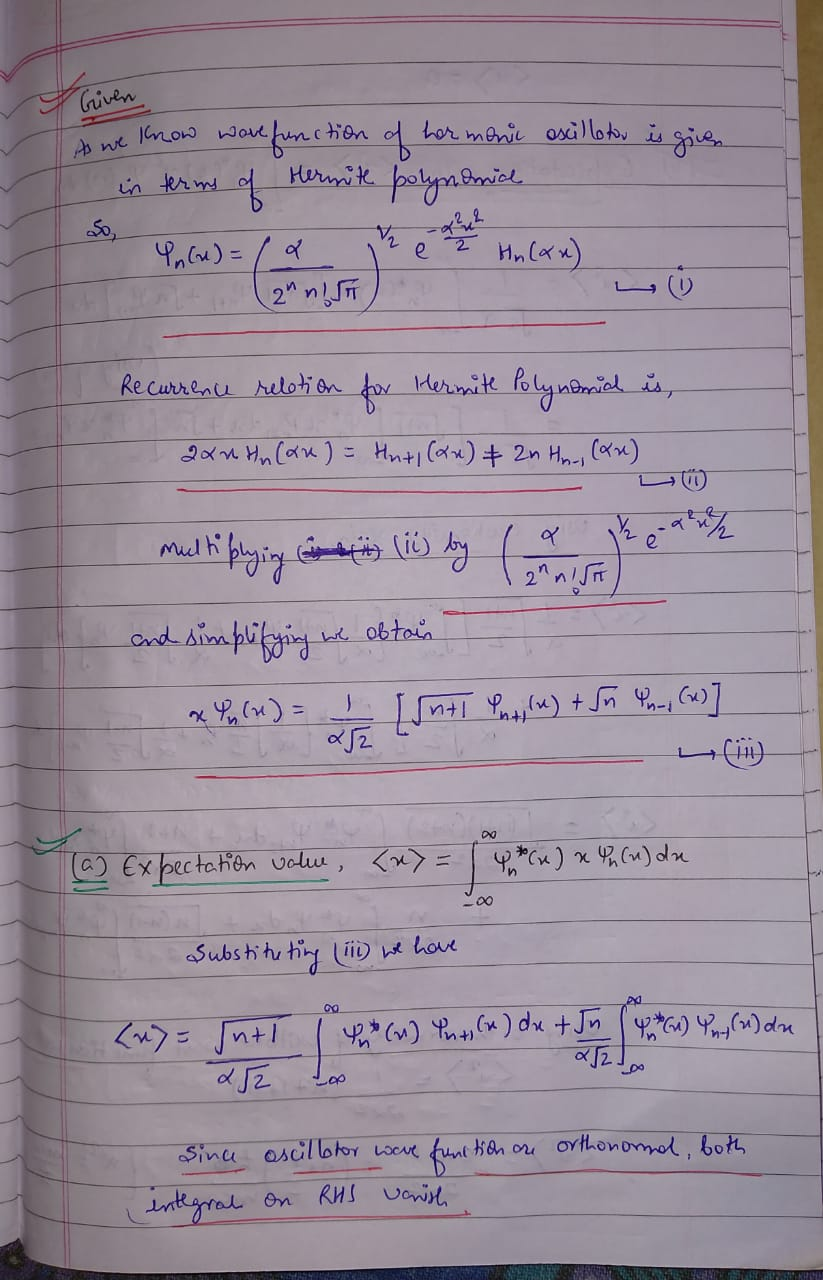 Given
As we know wavefunction of harmonic oscillator is given
in terms of Hermite polynomial
So,
Ψn(x) = (α / 2ⁿ n! √π)^1/2 e^(-α²x²/2) Hn(αx) → (i)
Recurrence relation for Hermite Polynomial is,
2αx Hn(αx) = Hn+1(αx) + 2n Hn-1(αx) → (ii)
Multiplying (ii) by (α / 2ⁿ n! √π)^1/2 e^(-α²x²/2)
and simplifying we obtain
x Ψn(x) = 1/α√2 [√n+1 Ψn+1(x) + √n Ψn-1(x)] → (iii)
(a) Expectation value, <x> = ∫_-∞^∞ Ψn*(x) x Ψn(x) dx
Substituting (iii) we have
<x> = √n+1/α√2 ∫_-∞^∞ Ψn*(x) Ψn+1(x) dx + √n/α√2 ∫_-∞^∞ Ψn*(x) Ψn-1(x) dx
Since oscillator wave function are orthonormal, both
integral on RHS vanish.